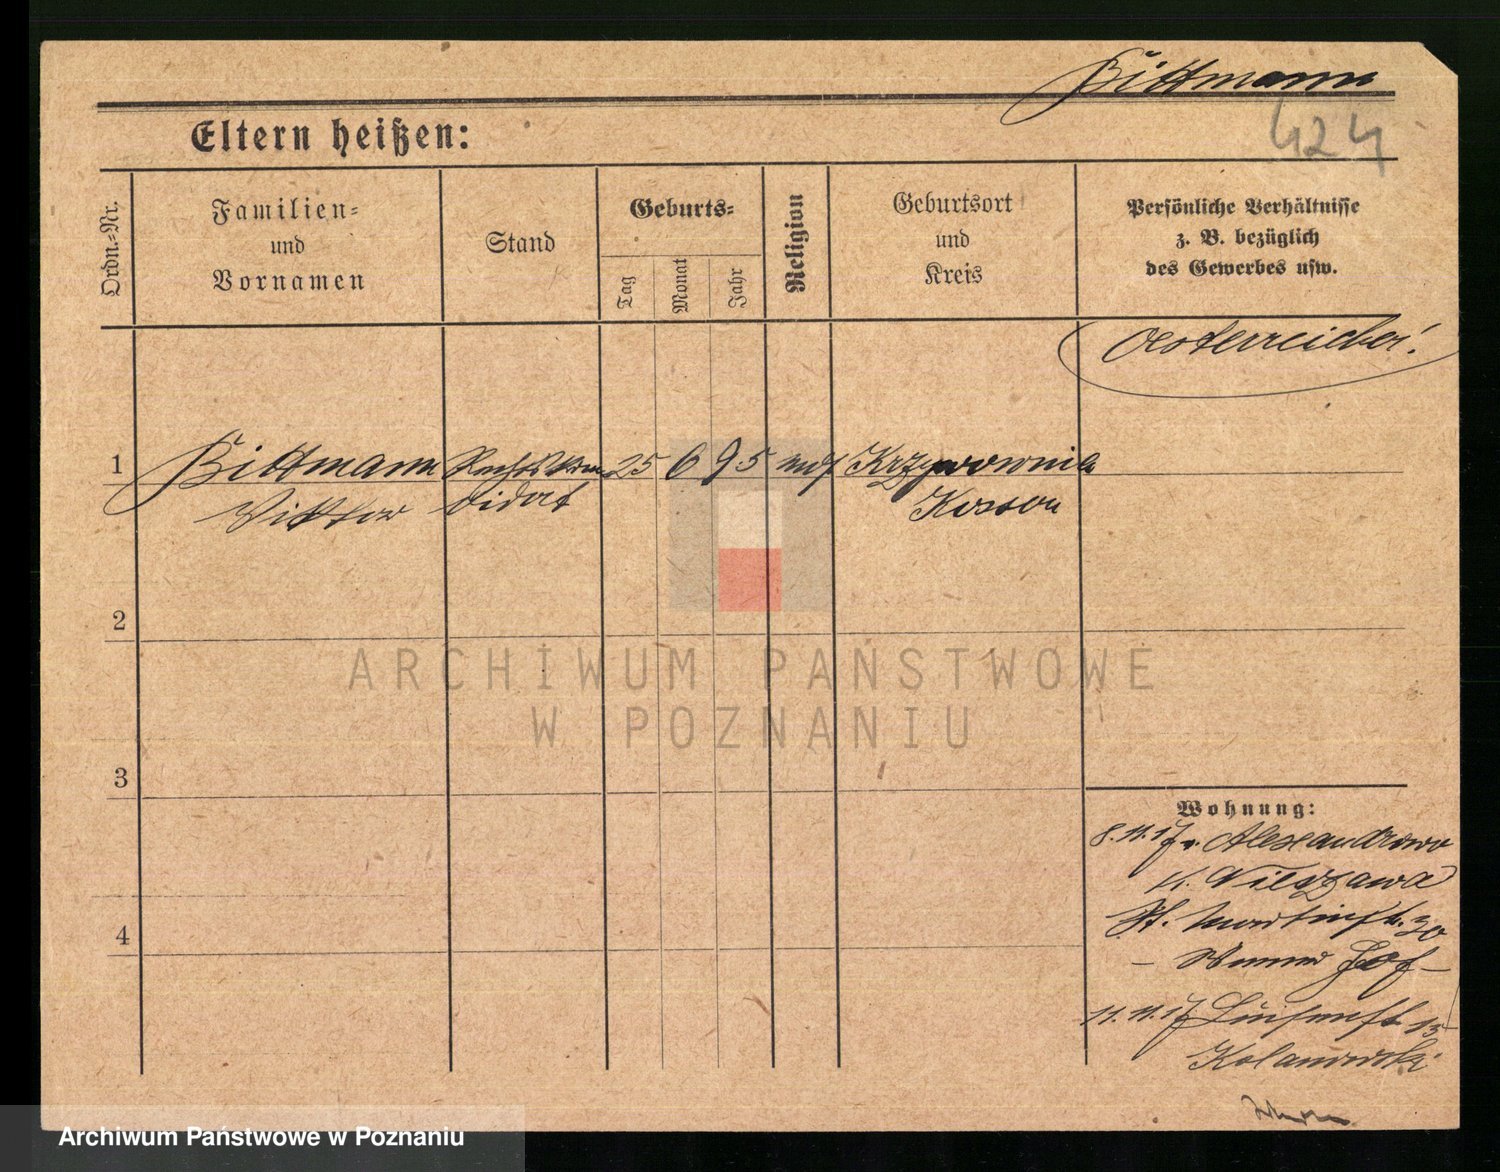 Bittmann
424
Eltern heißen:
Ordn.-Nr.
Familien-
und
Vornamen
Stand
Geburts-
Tag
Monat
Jahr
Religion
Geburtsort
und
Kreis
Persönliche Verhältnisse
z. B. bezüglich
des Gewerbes usw.
Oesterreicher!
1 Bittmann Rechtskan 25 6 95 Krzyworownia
Viktor didat Kossow
2
ARCHIWUM PAŃSTWOWE
W POZNANIU
3
Wohnung:
8.11.17 v. Alexandrowo
K. Nieszawa
St. Martinstr. 30
Hof –
4
11.11.17 Luisenstr. 15
Kolanowski
Archiwum Państwowe w Poznaniu